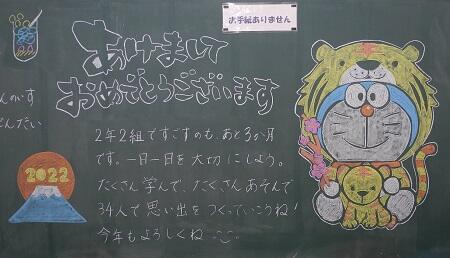 お手紙ありません
あけまして
おめでとうございます
2年2組ですごすのも、あと3か月
です。一日一日を大切にしよう。
たくさん学んで、たくさんあそんで
34人で思い出をつくっていこうね!
今年もよろしくね
2022